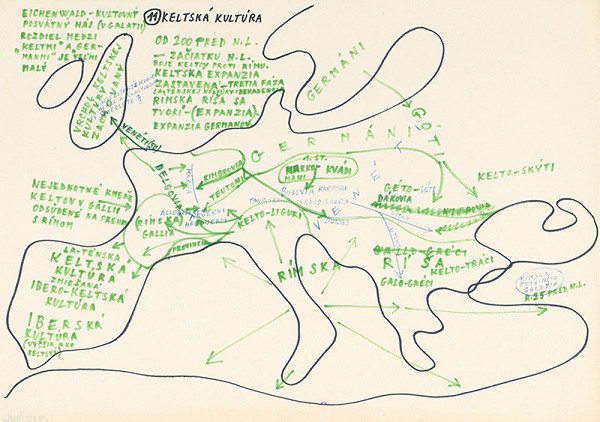 EICHENWALD - KULTOVNÝ
POSVÄTNÝ HÁJ (V GALATII)
ROZDIEL MEDZI
KELTMI "A" GER-
MANMI" JE VEĽMI
MALÝ
11 KELTSKÁ KULTÚRA
OD 200 PRED N.L.
- ZAČIATKU N.L.
BOJE KELTOV PROTI RÍMU.
KELTSKÁ EXPANZIA
ZASTAVENÁ - TRETIA FÁZA
LATÉNSKEJ KULTÚRY: DEKADENCIA
RIMSKA RÍŠA SA
TVORÍ - (EXPANZIA)
EXPANZIA GERMÁNOV.
VRCHOL KELTSKEJ
KULTÚRY
VENÉTI
GERMÁNI
GÓTI
GERMÁNI
BELGOVIA
KIMBROVIA
TEUTONI
1. ST.
MARKO-
MANI
KVÁDI
KELTO-SKÝTI
GETO-
DÁKOVIA
NEJEDNOTNÉ KMENE
KELTOV V GALLII
ODSÚDENÉ NA PREHRU
S RÍMOM
(RÍMSKA)
GALLIA
PROVINCIA
KELTO-LIGURI
BÓJOVIA
SKORDISKOVIA
GALLO-GRÉCI
RÍMSKA
RÍŠA
KELTO-TRÁCI
GALO-GRÉCI
RÍMSKA
PROVINCIA
GALATIA
R. 25 PRED N.L.
LA-TÉNSKA
KELTSKÁ
KULTÚRA
ZMIEŠANÁ
IBERO-KELTSKÁ
KULTÚRA
IBERSKÁ
KULTÚRA
(VYŠŠIA AKO
KELTSKÁ)